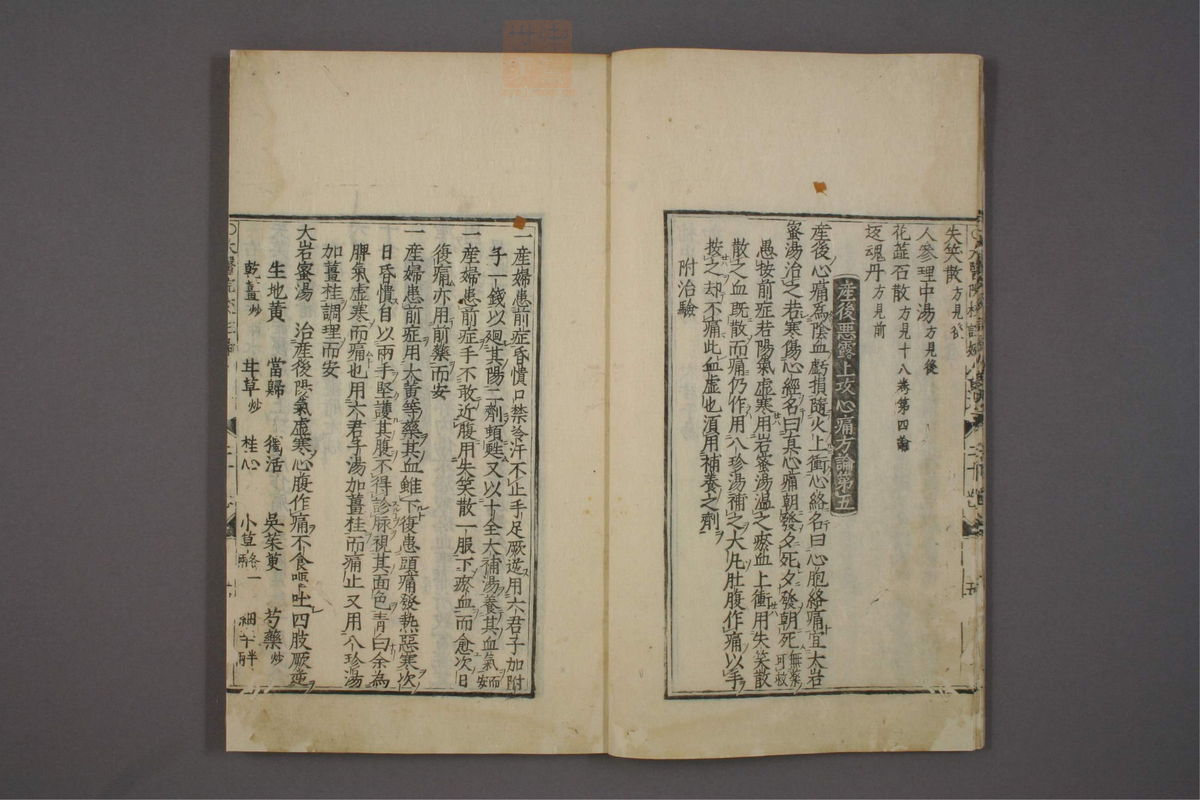 失笑散方見
人參理中湯方見後
花蕋石散方見十八卷第四論
返魂丹方見前
産後惡露上攻心痛方論第五
産後心痛為陰血虧損隨火上衝心絡名曰心胞絡痛宜大岩
蜜湯治之若寒傷心經名曰真心痛朝發夕死夕發朝死無藥可救
愚按前症若陽氣虛寒用岩蜜湯温之瘀血上衝用失笑散
散之血既散而痛仍作用八珍湯補之大凡肚腹作痛以手
按之却不痛此血虛也湏用補養之劑
附治驗
一産婦患前症昏憒口禁冷汗不止手足厥逆用六君子加附
子一錢以廻其陽二劑頓甦又以十全大補湯養其血氣而安
一産婦患前症手不敢近腹用失笑散一服下瘀血而愈次日
復痛亦用前藥而安
一産婦患前症用大黄等藥其血雖下復患頭痛發熱惡寒次
日昏憒自以兩手堅護其腹不得診脉視其面色青曰余為
脾氣虛寒而痛也用六君子湯加薑桂而痛止又用八珍湯
加薑桂調理而安
大岩蜜湯 治産後陽氣虛寒心腹作痛不食嘔吐四肢厥逆
生地黄 當歸 獨活 吳茱萸 芍藥炒
乾薑炒 甘草炒 桂心 小草各一兩 細辛半兩